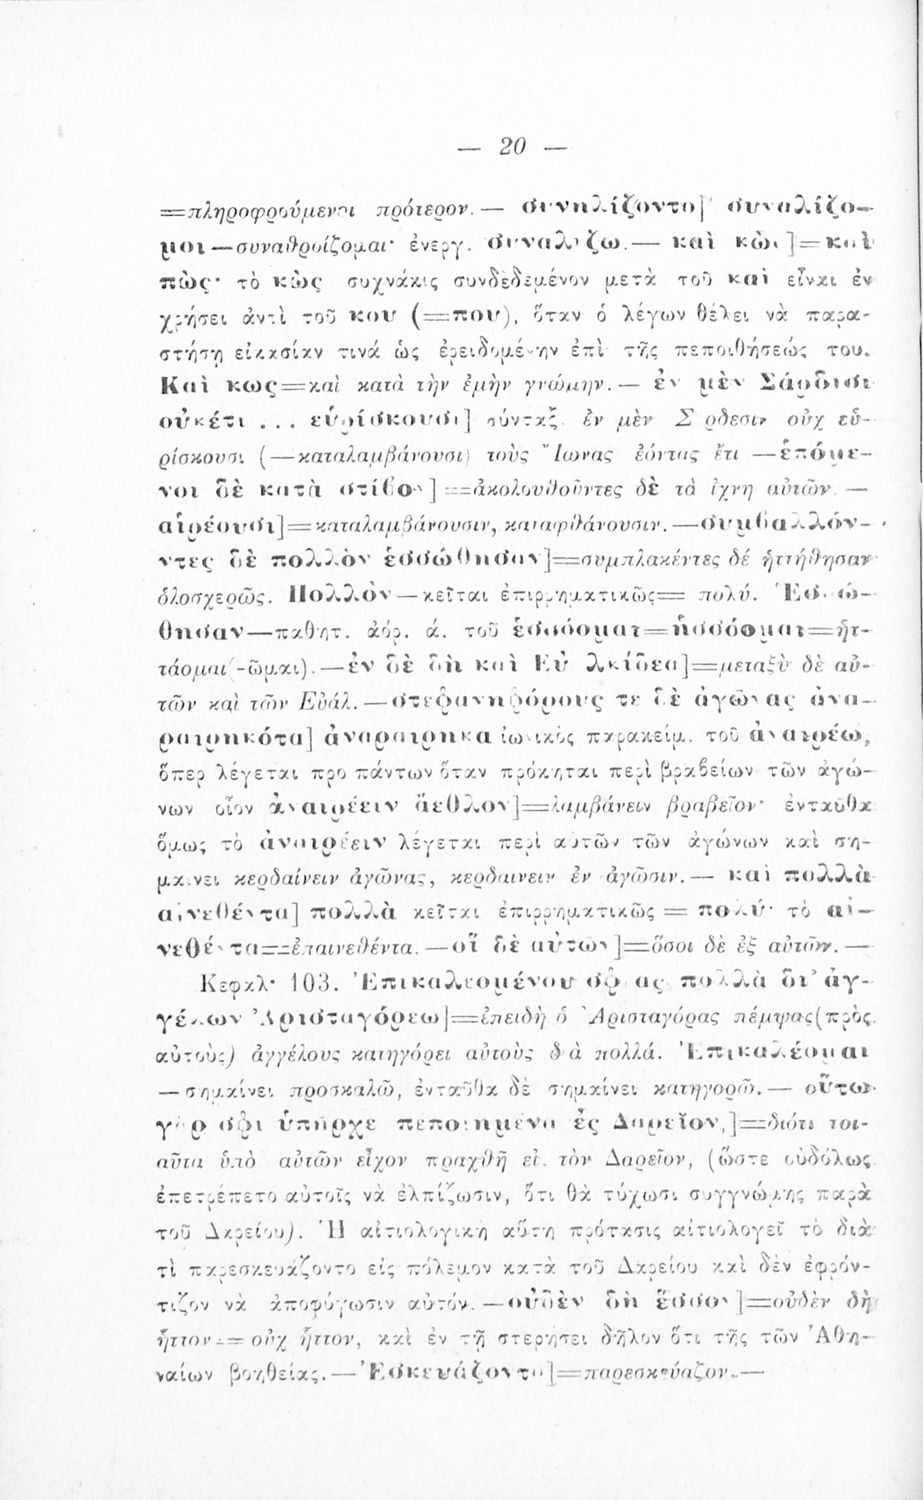 — 20 —
=πληροφρούμενοι πρότερον.— συνηλίζοντο] συναλίζο-
μαι—συναθροίζομαι· ἐνεργ. συναλίζω.— καὶ κὼς]=καὶ
πὼς· τὸ κὼς συχνάκις συνδεδεμένον μετὰ τοῦ καὶ εἶναι ἐν
χρήσει ἀντὶ τοῦ κου (=που), ὅταν ὁ λέγων θέλει νὰ παρα-
στήσῃ εἰκασίαν τινά ὡς ἐρειδομένην ἐπὶ τῆς πεποιθήσεώς του.
Καὶ κως=καὶ κατὰ τὴν ἐμὴν γνώμην.— ἐν μὲν Σάρδισι
οὐκέτι ... εὑρίσκουσι] σύνταξ. ἐν μὲν Σάρδεσιν οὐχ εὑ-
ρίσκουσι (—καταλαμβάνουσι) τοὺς Ἴωνας ἐόντας ἔτι —ἑπόμε-
νοι δὲ κατὰ στίβον]=ἀκολουθοῦντες δὲ τὰ ἴχνη αὐτῶν —
αἱρέουσι]=καταλαμβάνουσιν, καταφθάνουσιν.—συμβαλλόν-
ντες δὲ πολλὸν ἑσσώθησαν]=συμπλακέντες δέ ἡττήθησαν
ὁλοσχερῶς. Πολλὸν—κεῖται ἐπιρρηματικῶς= πολύ. Ἑσσώ-
θησαν—παθητ. ἀόρ. ά. τοῦ ἑσσόομαι=ἡσσόομαι=ἡτ-
τάομαι(-ῶμαι).—ἐν δὲ δὴ καὶ Εὐαλκίδεα]=μεταξὺ δὲ αὐ-
τῶν καὶ τῶν Εὐάλ.—στεφανηφόρους τε δὲ ἀγῶνας ἀνα-
ραιρηκότα] ἀναραιρηκα ἰωνικὸς παρακείμ. τοῦ ἀναιρέω,
ὅπερ λέγεται προ πάντων ὅταν πρόκηται περὶ βραβείων τῶν ἀγώ-
νων οἷον ἀναιρέειν ἄεθλον]=λαμβάνειν βραβεῖον· ἐνταῦθα
ὅμως τὸ ἀναιρέειν λέγεται περὶ αὐτῶν τῶν ἀγώνων καὶ ση-
μαίνει κερδαίνειν ἀγῶνας, κερδαινειν ἐν ἀγῶσιν.— καὶ πολλὰ
αἰνεθέντα] πολλὰ κεῖται ἐπιρρηματικῶς = πολύ· τὸ αἰ—
νεθέντα=ἐπαινεθέντα.—οἳ δὲ αὐτῶν]=ὅσοι δὲ ἐξ αὐτῶν.—
Κεφαλ· 103. Ἐπικαλεομένου σφέας πολλὰ δι᾽ ἀγ-
γέλων Ἀρισταγόρεω]=ἐπειδὴ ὁ Ἀρισταγόρας πέμψας(πρὸς
αὐτοὺς) ἀγγέλους κατηγόρει αὐτοὺς διὰ πολλά. Ἐπικαλέομαι
—σημαίνει προσκαλῶ, ἐνταῦθα δὲ σημαίνει κατηγορῶ.— οὕτω
γὰρ σφι ὑπῆρχε πεποιημένα ἐς Δαρεῖον,]=διότι τοι-
αῦτα ὑπὸ αὐτῶν εἶχον πραχθῆ εἰς τὸν Δαρεῖον, (ὥστε οὐδόλως
ἐπετρέπετο αὐτοῖς νὰ ἐλπίζωσιν, ὅτι θὰ τύχωσι συγγνώμης παρὰ
τοῦ Δαρείου). Ἡ αἰτιολογικὴ αὕτη πρότασις αἰτιολογεῖ τὸ διὰ
τί παρεσκευάζοντο εἰς πόλεμον κατὰ τοῦ Δαρείου καὶ δὲν ἐφρόν-
τιζον νὰ ἀποφύγωσιν αὐτόν.—οὐδὲν δὴ ἔσσον]=οὐδὲν δὴ
ἧττον = οὐχ ἧττον, καὶ ἐν τῇ στερήσει δῆλον ὅτι τῆς τῶν Ἀθη-
ναίων βοηθείας.—Ἐσκευάζοντο]=παρεσκεύαζον.—